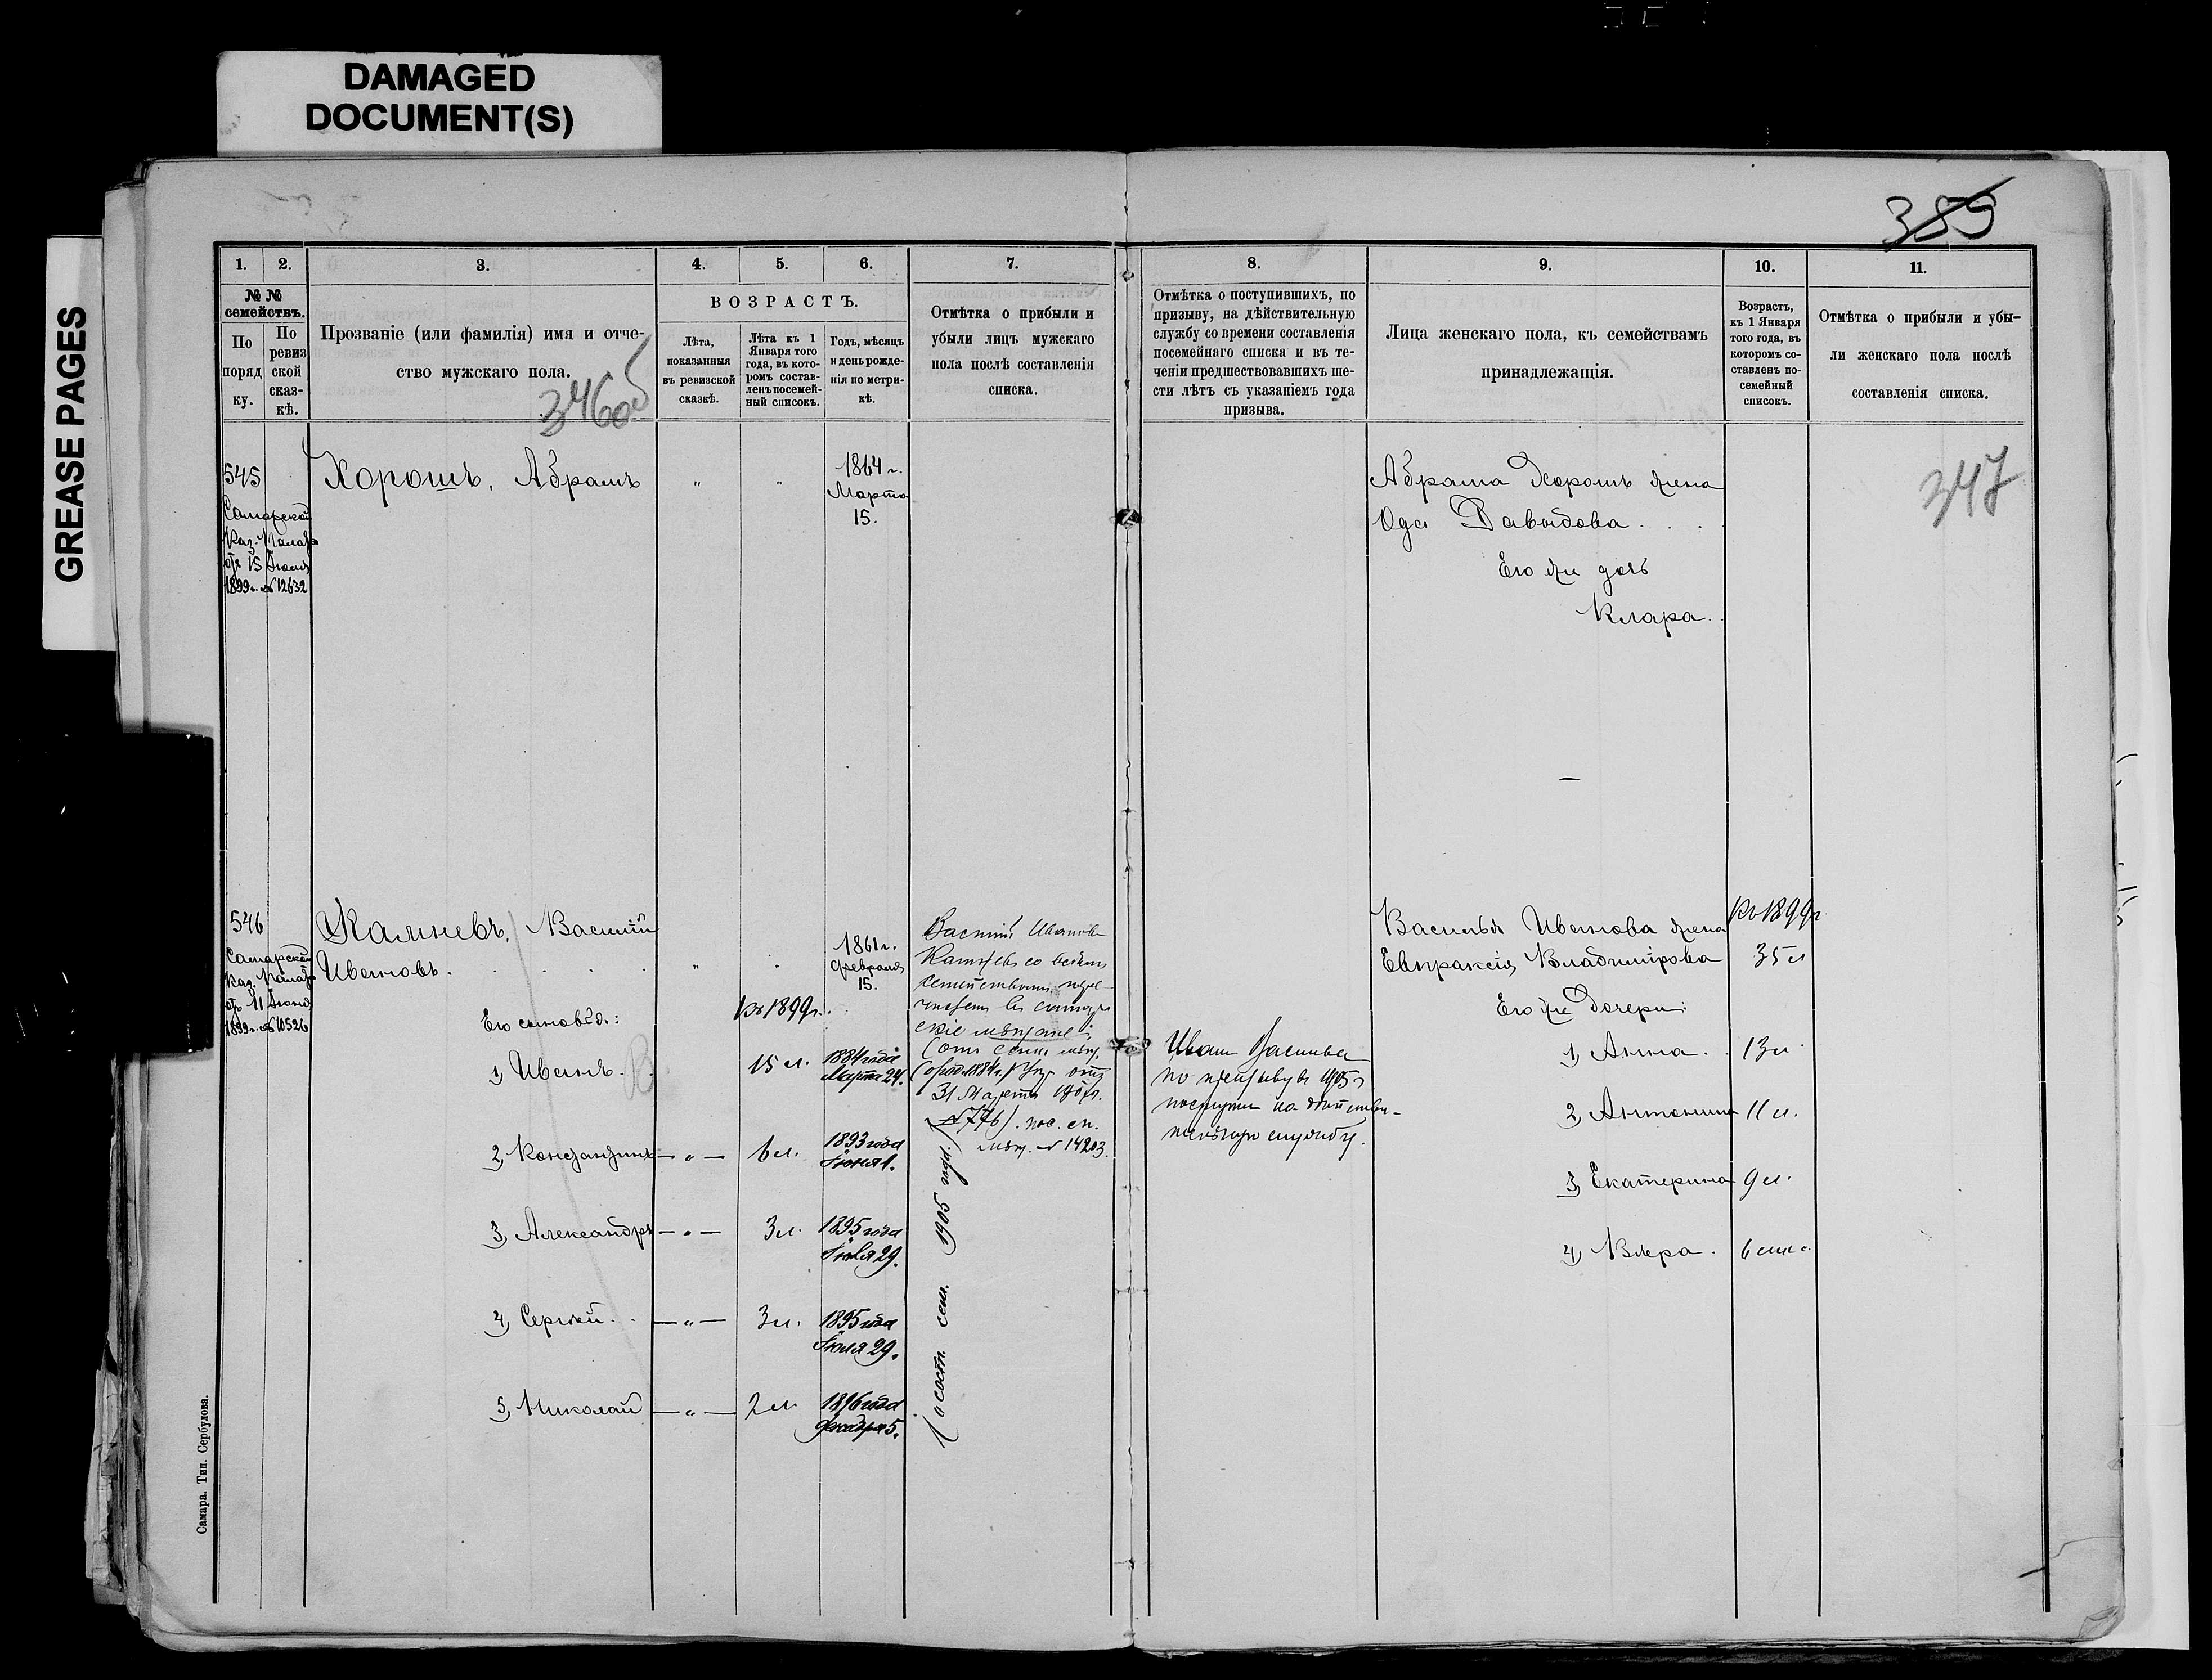 DAMAGED
DOCUMENT(S)
GREASE PAGES
389
1.
2.
3.
4.
5.
6.
7.
8.
9.
10.
11.
№ №
семействъ.
По
поряд
ку.
По
ревиз
ской
сказ-
кѣ.
Прозваніе (или фамилія) имя и отче-
ство мужскаго пола.
346об
ВОЗРАСТЪ.
Лѣта,
показанныя
въ ревизской
сказкѣ.
Лѣта къ 1
Января того
года, въ кото-
ромъ состав-
ленъ посемей-
ный списокъ.
Годъ, мѣсяцъ
и день рожде-
нія по метри-
кѣ.
Отмѣтка о прибыли и
убыли лицъ мужскаго
пола послѣ составленія
списка.
Отмѣтка о поступившихъ, по
призыву, на дѣйствительную
службу со времени составленія
посемейнаго списка и въ те-
ченіи предшествовавшихъ ше-
сти лѣтъ съ указаніемъ года
призыва.
Лица женскаго пола, къ семействамъ
принадлежащія.
Возрастъ,
къ 1 Января
того года, въ
которомъ со-
ставленъ по-
семейный
списокъ.
Отмѣтка о прибыли и убы-
ли женскаго пола послѣ
составленія списка.
347
545
Самарской
Каз. Палаты
отъ 15 Іюля
1899 г. № 12632
Хорошъ, Абрамъ
" "
1864 г.
Марта
15.
Абрама Хорошъ жена
Ода Давыдова . . .
Его же дочь
Клара.
546
Самарской
Каз. Палаты
отъ 11 Іюня
1899 г. № 10526
Василій
Ивановъ.
1861 г.
Февраля
15.
Его сыновья:
Къ 1899 г.
1, Иванъ.
15 л.
1884 года
Марта 24.
2, Константинъ — " —
6 л.
1893 года
3, Александръ — " —
3 л.
1895 года
Іюля 29.
4, Сергѣй. . — " —
3 л.
1895 года
Іюля 29.
5, Николай — " —
2 л.
1896 года
Декабря 5.
Василій Ивановъ
со всѣмъ
семействомъ пере-
31 Марта
№ 776). пос. сп.
мѣщ. № 14203.
(о сост. сем. 1905 года.)
Иванъ Васильевъ
по призыву въ 1905 г
поступилъ на дѣйстви-
тельную службу.
Василья Иванова жена
Евпраксія Владимірова
Къ 1899 г.
35 л
Его же дочери:
1, Анна. . 13 л.
2, Антонина 11 л.
3, Екатерина 9 л.
4, Вѣра. 6 мѣс.
Самара. Тип. Сербулова.